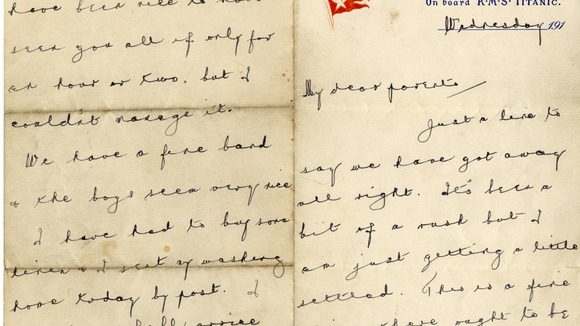 On board R.M.S. TITANIC.
Wednesday 191
My dear parents
Just a line to
say we have got away
all right. It's been a
bit of a rush but I
am just getting a little
settled. This is a fine
ought to be
have been nice to have
seen you all if only for
an hour or two. but I
couldn't manage it.
We have a fine band
& the boys seem very nice
I have had to buy some
linen & I sent my washing
home today by post. I